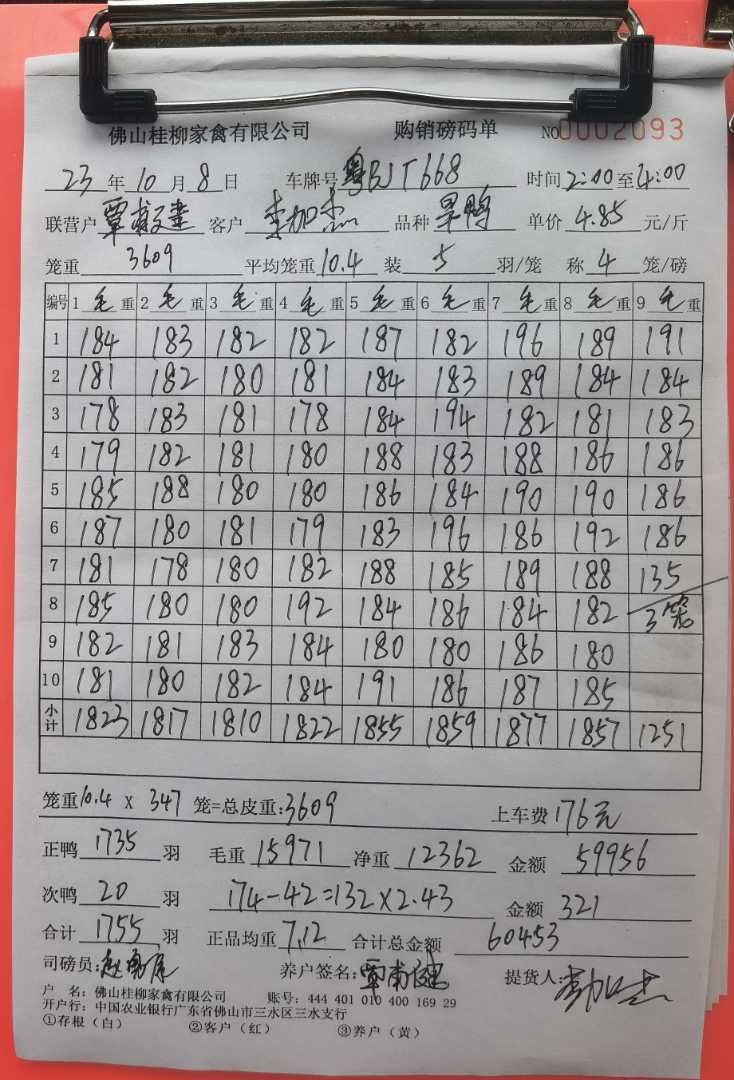 佛山桂柳家禽有限公司 购销磅码单 NO0002093
23年10月8日 车牌号粤BJT668 时间2:00至4:00
联营户 客户李加杰 品种旱鸭 单价4.85元/斤
笼重3609 平均笼重10.4 装5羽/笼 称4笼/磅
编号 1毛重 2毛重 3毛重 4毛重 5毛重 6毛重 7毛重 8毛重 9毛重
1 184 183 182 182 187 182 196 189 191
2 181 182 180 181 184 183 189 184 184
3 178 183 181 178 184 194 182 181 183
4 179 182 181 180 188 183 188 186 186
5 185 188 180 180 186 184 190 190 186
6 187 180 181 179 183 196 186 192 186
7 181 178 180 182 188 185 189 188 135
8 185 180 180 192 184 186 184 182 3笼
9 182 181 183 184 180 180 186 180
10 181 180 182 184 191 186 187 185
小计 1823 1817 1810 1822 1855 1859 1877 1857 1251
笼重10.4 x 347笼=总皮重:3609 上车费176元
正鸭1735羽 毛重15971 净重12362 金额59956
次鸭20羽 174-42=132×2.43 金额321
合计1755羽 正品均重7.12 合计总金额60453
司磅员: 养户签名: 提货人:
户 名: 佛山桂柳家禽有限公司 账号: 444 401 010 400 169 29
开户行: 中国农业银行广东省佛山市三水区三水支行
①存根（白） ②客户（红） ③养户（黄）